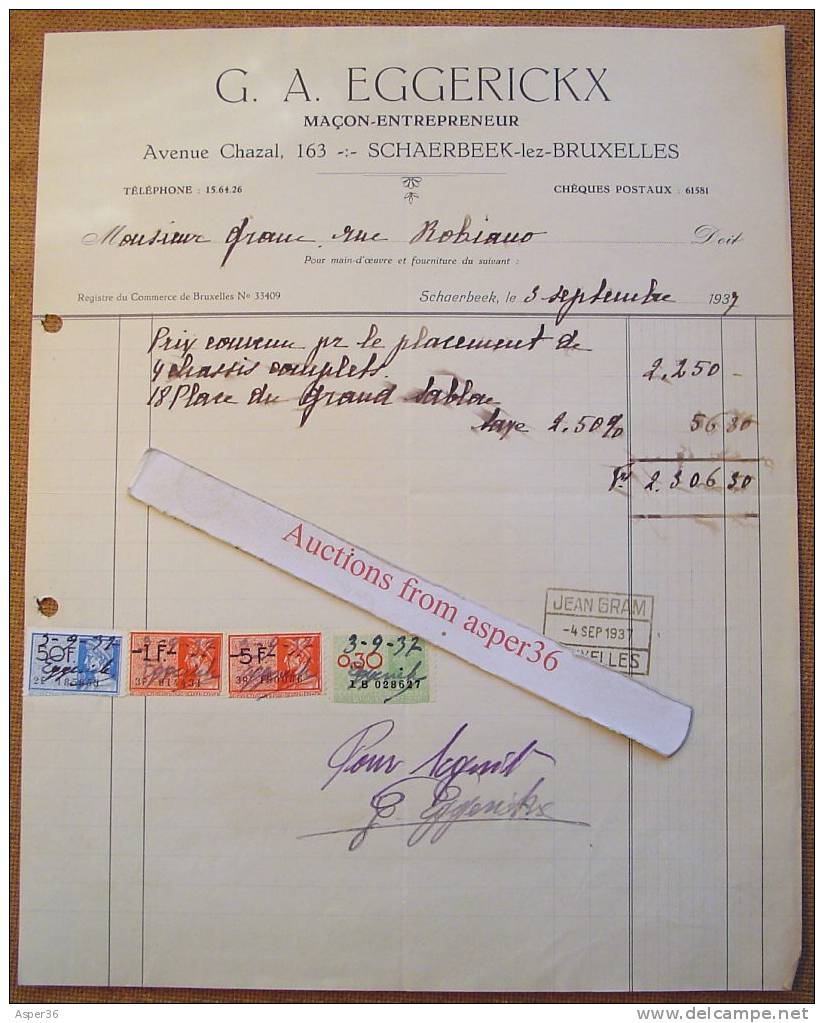 G. A. EGGERICKX
MAÇON-ENTREPRENEUR
Avenue Chazal, 163 -:- SCHAERBEEK-lez-BRUXELLES
TÉLÉPHONE : 15.64.26 CHÈQUES POSTAUX : 61581
Monsieur Gram rue Robiano Doit
Pour main-d'œuvre et fourniture du suivant :
Registre du Commerce de Bruxelles No 33409 Schaerbeek, le 3 septembre 1937
Prix convenu pr le placement de
4 chassis complets. 2.250 -
18 Place du Grand Sablon
taxe 2.50% 56 30
Fr 2.306 30
Auctions from asper36
JEAN GRAM
-4 SEP 1937
3-9-37 3-9-37 3-9-37 3-9-37
50F. 1F. 5F 0,30
1B 028627
Pour acquit
G. Eggerickx
Asper36
www.delcampe.net